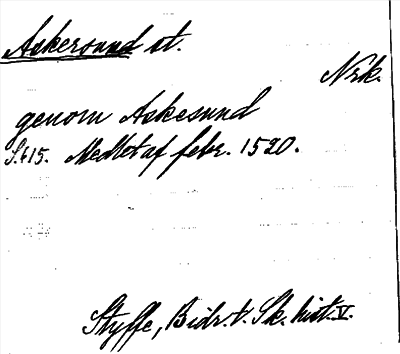 Askersund st.
Nrk.
genom Askesund
S. 615. Medlet af febr. 1520.
Styffe, Bidr. t. Sk. hist. V.